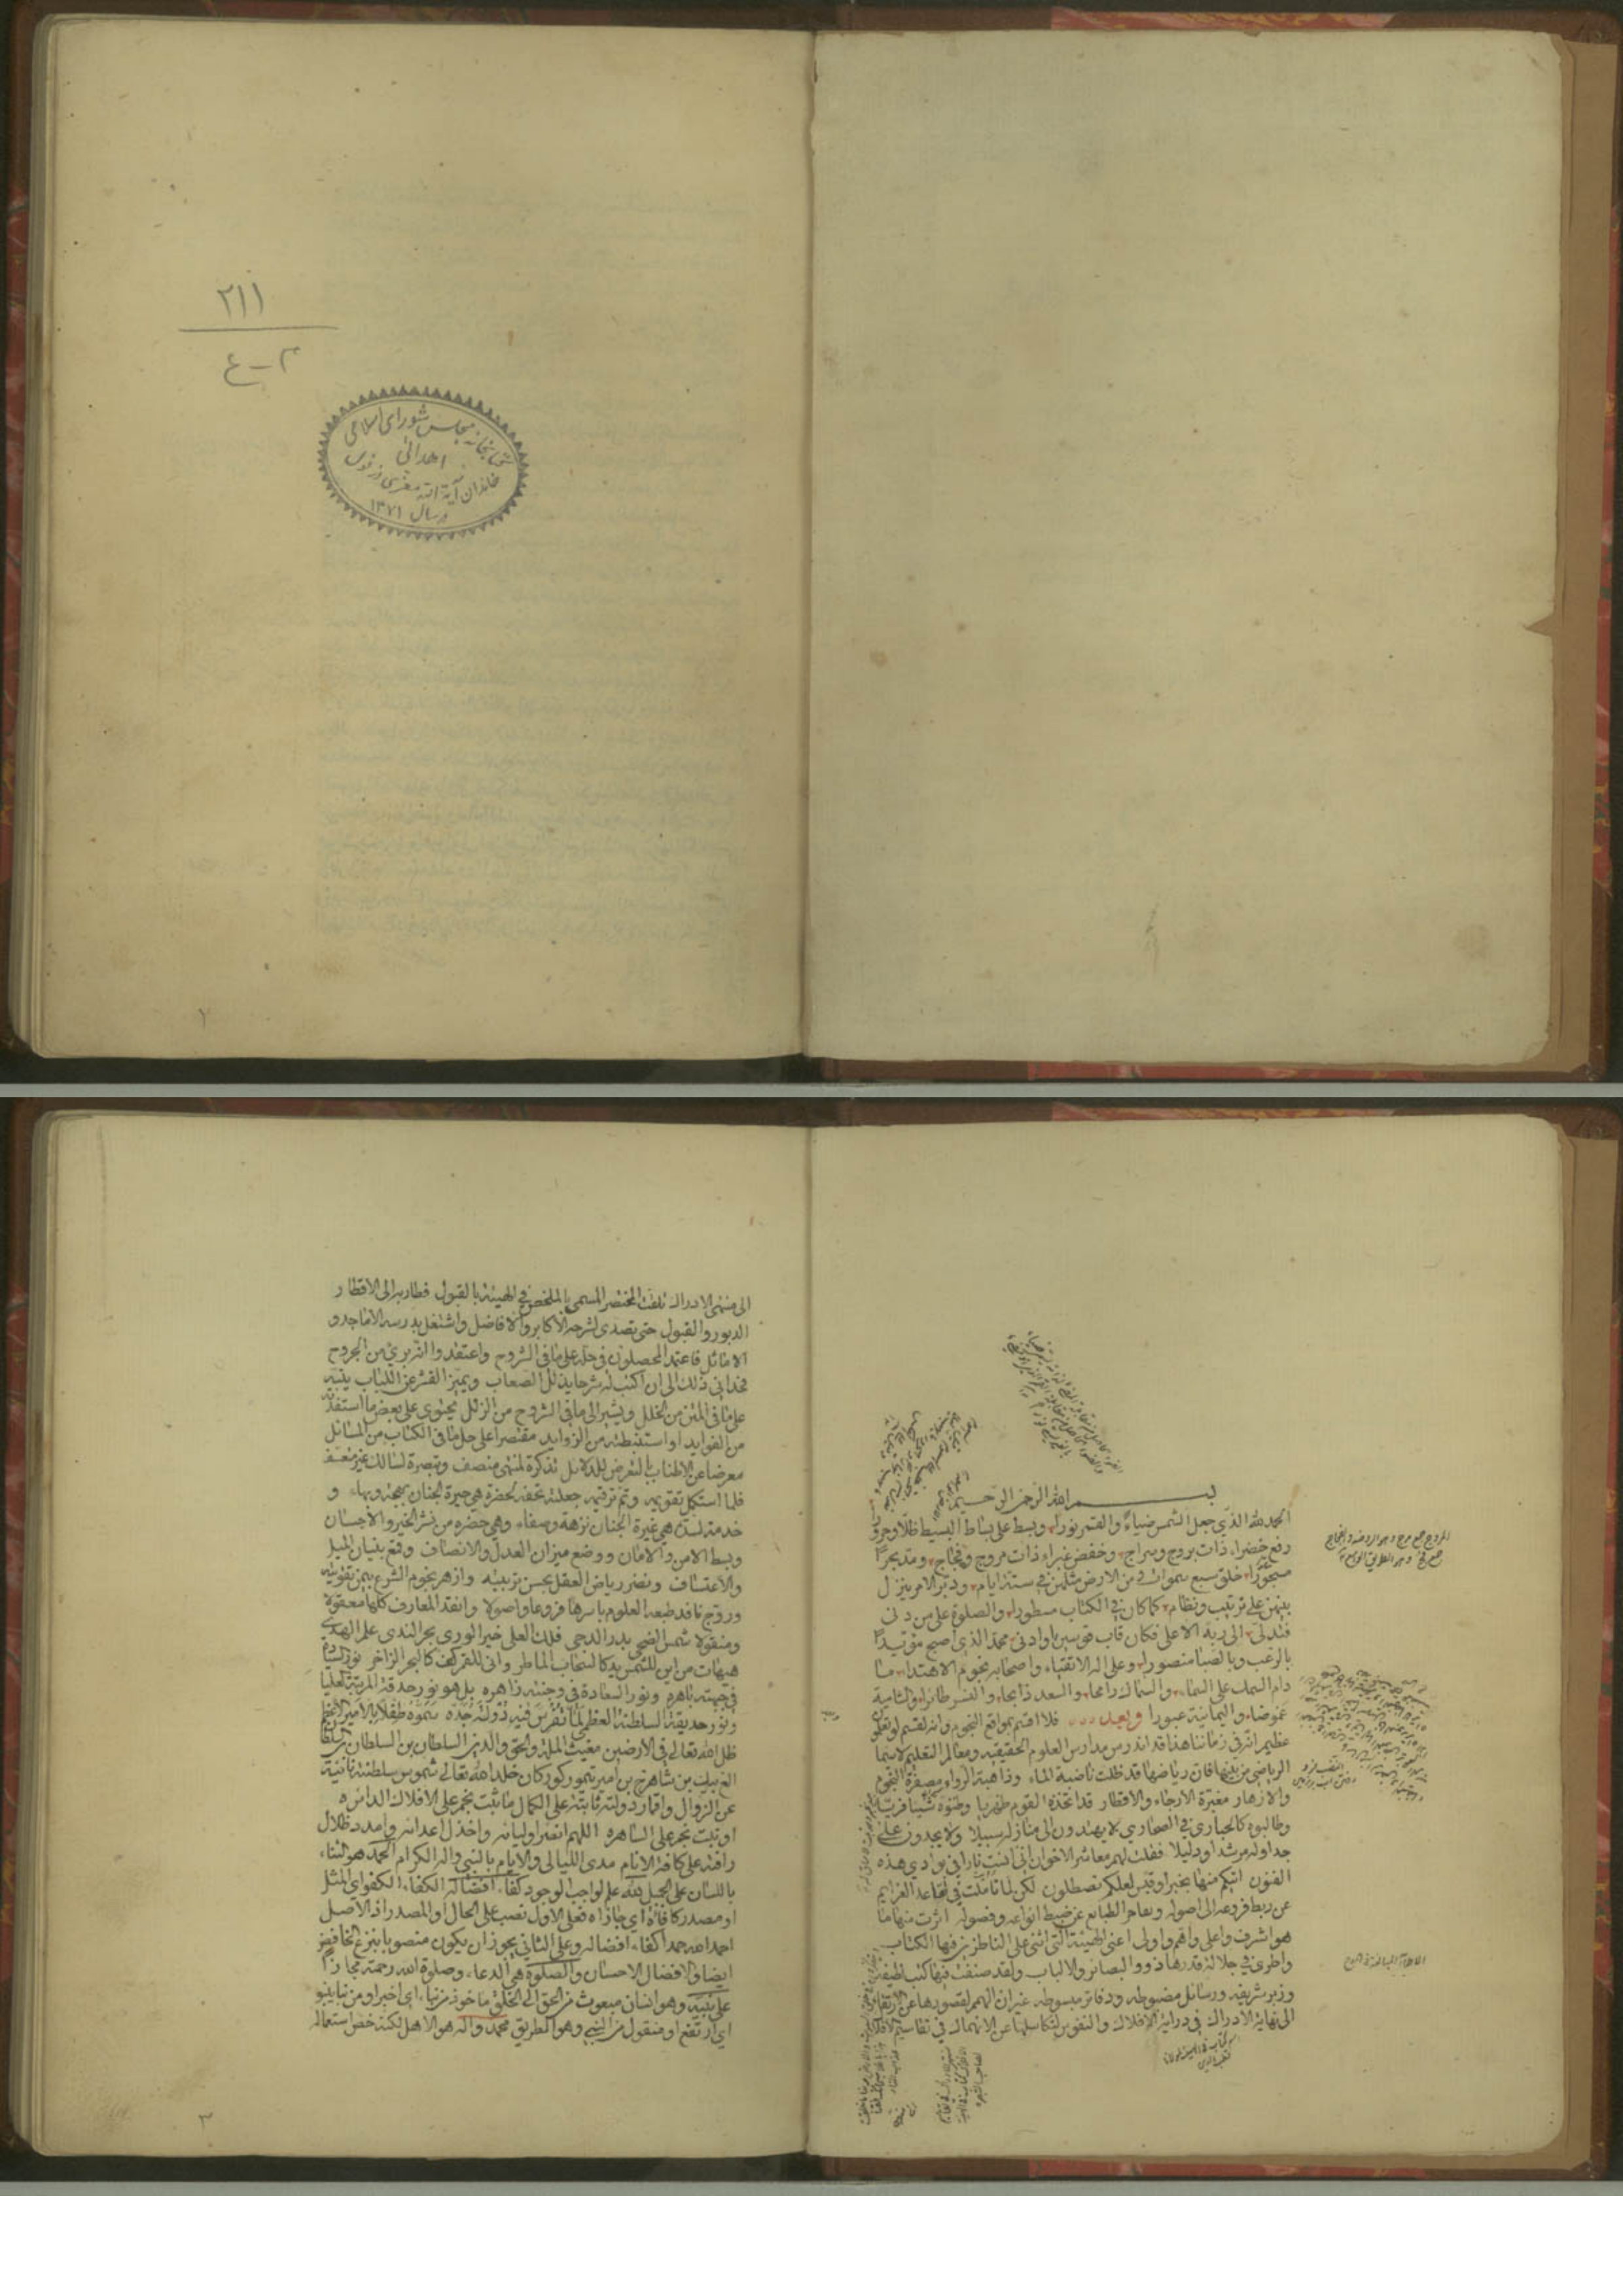 ٢١١
٢-٤
کتابخانه مجلس شورای اسلامی
اهدائی
خاندان آیة الله معزی دزفولی
در سال ١٣٧١
٢
بسم الله الرحمن الرحيم
الحمد لله الذي جعل الشمس ضياء والقمر نورا وبسط على بساط البسيط ظلا وحرورا
رفع خضراء ذات بروج وسراج وخفض غبراء ذات مروج وفجاج ومد بحرا
مسجورا خلق سبع سموات ومن الارض مثلهن في ستة ايام ودبر الامر ينزل
بينهن على ترتيب ونظام كما كان في الكتاب مسطورا والصلوة على من دنى
فتدلى الى ربه الاعلى فكان قاب قوسين او ادنى محمد الذي اصبح مؤيدا
بالرعب وبالصبا منصورا وعلى اله الاتقياء واصحابه نجوم الاهتداء ما
دام السمك على السماء والسماك رامحا والسعد ذابحا والنسر طائرا والشامية
غموضا واليمانية عبورا وبعد فلا اقسم بمواقع النجوم وانه لقسم لو تعلمون
عظيم انه في زماننا هذا قد اندرس مدارس العلوم الحقيقيه ومعالم التعليم لا سيما
الرياضي من بينها فان رياضها قد ظلت ناضبة الماء وذاهبة الرواء مصفرة النجوم
والازهار مغبرة الارجاء والاقطار قد اتخذه القوم ظهريا وظنوه شيئا فريا
وطالبوه كالحبارى في الصحارى لا يهتدون الى منازله سبيلا ولا يجدون على
جداوله مرشدا ودليلا فقلت لهم معاشر الاخوان اني انست نارا في بوادي هذه
الفنون اتيكم منها بخبر او قبس لعلكم تصطلون لكن لما تأملت في تقاعد العزايم
عن ربط فروعه الى اصوله وتقاصر الطبايع عن ضبط انواعه وفصوله اثرت منها ما
هو اشرف واعلى واهم واولى اعني الهيئة التي اثنى على الناظرين فيها الكتاب
واطرى في جلالة قدرها ذووا البصائر والالباب ولقد صنفت فيها كتب لطيفه
وزبر شريفه ورسائل مضبوطه ودفاتر مبسوطه غير ان الهمم لقصورها عن الارتقاء
الى نهاية الادراك في دراية الافلاك والنفوس لتكاسلها عن الانهماك في تقاسيم الافلاك
الى منتهى الادراك تلقت المختصر المسمى بالملخص في الهيئة بالقبول فطار به الى الاقطار
الدبور والقبول حتى تصدى لشرحه الاكابر والافاضل واشتغل بدرسه الاماجد و
الاماثل فاعتمد المحصلون في حله على ما في الشروح واعتقدوا انه بريئ من الجروح
فحداني ذلك الى ان اكتب له شرحا يذلل الصعاب ويميز القشر عن اللباب ينبه
على ما في المتن من الخلل ويشير الى ما في الشروح من الزلل يحتوي على بعض ما استفدته
من الفوايد او استنبطته من الزوايد مقتصرا على حل ما في الكتاب من المسائل
معرضا عن الاطناب بالتعرض للدلائل تذكرة لمنتهى منصف وتبصرة لسالك غير متعسف
فلما استكمل تقويمه وتم ترقيمه جعلته تحفة لحضرة هي حيرة الجنان بهجة وبهاء و
خدمة لسدة هي غيرة الجنان نزهة وصفاء وهي حضرة من نشر الخير والاحسان
وبسط الامن والامان ووضع ميزان العدل والانصاف ورفع بنيان الميل
والاعتساف ونضر رياض العقل بحسن تربيته وازهر نجوم الشرع بيمن تقويته
وروج ناقد طبعه العلوم باسرها فروعا واصولا وانتقد المعارف كلها معقولا
ومنقولا شمس الضحى بدر الدجى فلك العلى خير الورى بحر الندى علم الهدى
هيهات من اين للشمس يد كالسحاب الماطر وانى للقمر كف كالبحر الزاخر نور السيادة
في جبهته باهره ونور السعادة في وجنته زاهره بل هو نور حدقة المرتبة العليا
ونور حديقة السلطنة العظمى لما تفرس فيه دولة جده سموه طفلا بالامير الاعظم
ظل الله تعالى في الارضين مغيث الملة والحق والدين السلطان بن السلطان بن السلطان
الغ بيك بن شاهرخ بن امير تيمور كوركان خلد الله تعالى شموس سلطنته نائية
عن الزوال واقمار دولته ثابتة على الكمال ما ثبت نجم على الافلاك الدائره
او نبت نجر على الساهره اللهم انصر اوليائه واخذل اعدائه وامدد ظلال
رافته على كافة الانام مدى الليالي والايام بالنبي واله الكرام الحمد هو الثناء
باللسان على الجميل لله علم لواجب الوجود كفاء افضاله الكفاء الكفو اي المثل
او مصدر كافاه اي جازاه فعلى الاول نصب على الحال او المصدر اذ الاصل
احمد الله حمدا كفاء افضاله وعلى الثاني يجوز ان يكون منصوبا بنزع الخافض
ايضا والافضال الاحسان والصلوة هي الدعاء وصلوة الله رحمته مجازا
على نبيه وهو انسان مبعوث من الحق الى الخلق ماخوذ من نبأ اي اخبر او من نبا ينبو
اي ارتفع او منقول من النبي وهو الطريق محمد واله هو الاهل لكنه خص استعماله
٣